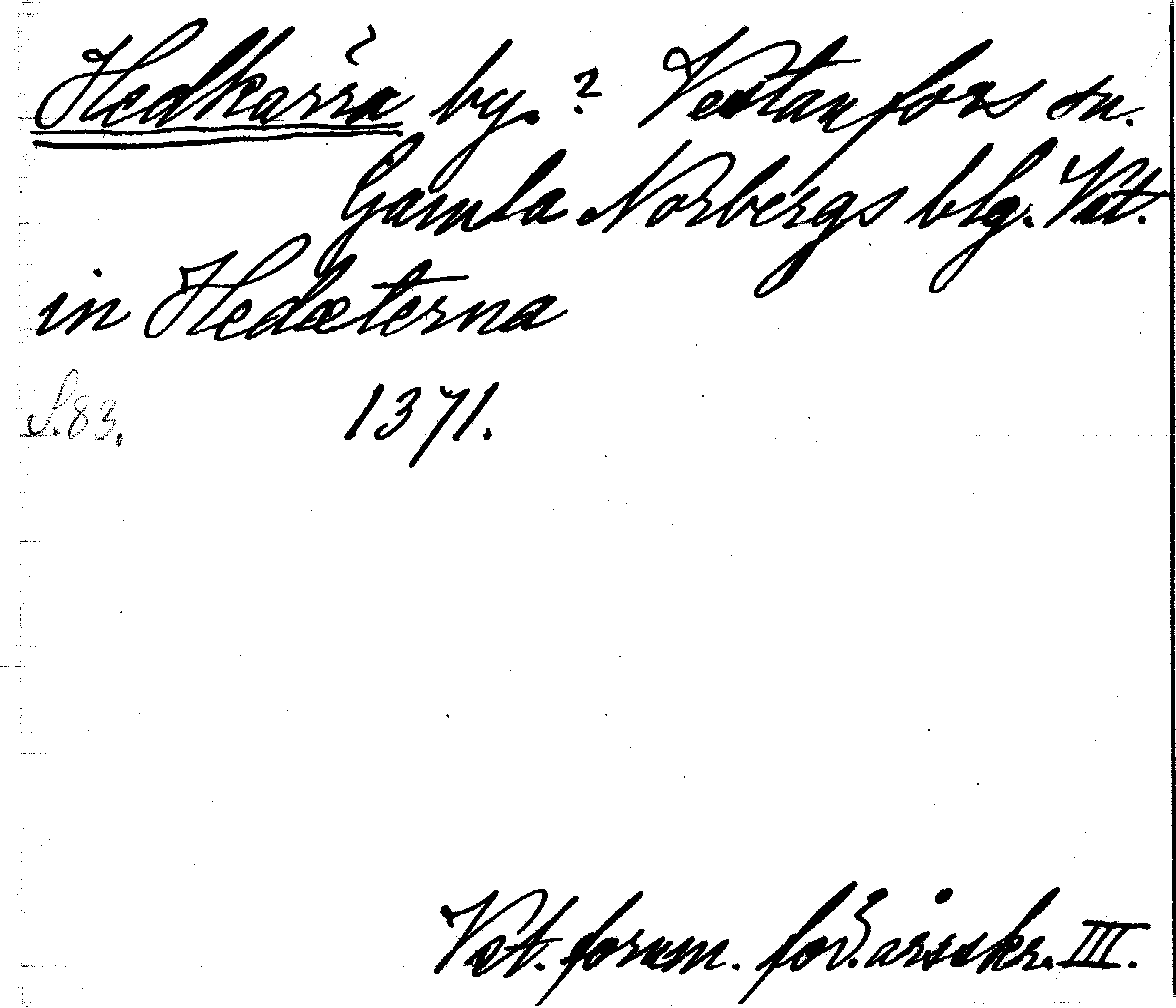 Hedkärra by.? Vestanfors sn.
Gamla Norbergs blg. Vst.
in Hedæterna
S.83. 1371.
Vst. fornm. för. årsskr. III.